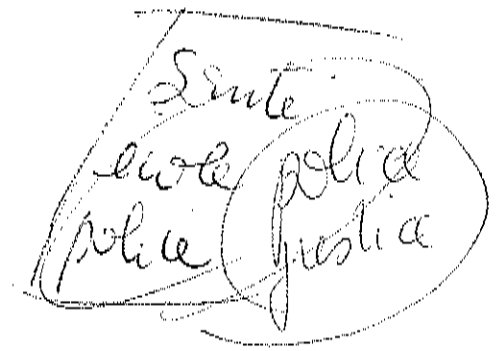 Santé
école police
police justice